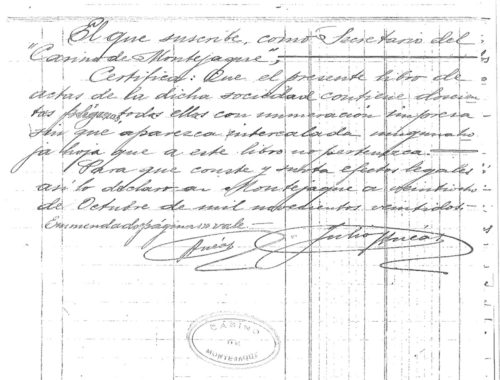 El que suscribe, como Secretario del
"Casino de Montejaque",
Certifico: Que el presente libro de
actas de la dicha sociedad contiene doscien
tas páginas, todas ellas con numeración impresa
sin que aparezca intercalada ninguna ho
ja hoja que a este libro no pertenezca
Para que conste y surta efectos legales
así lo declaro en Montejaque a veintiocho
de Octubre de mil novecientos veintidos.
Enmendado páginas vale
Julio
CASINO
DE
MONTEJAQUE